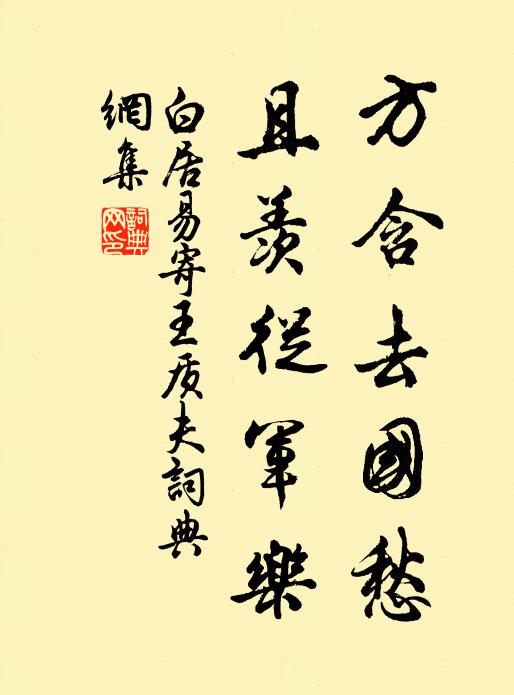 方含去國愁
且羨從軍樂
白居易寄王质夫詞典
網集
詞典
网印